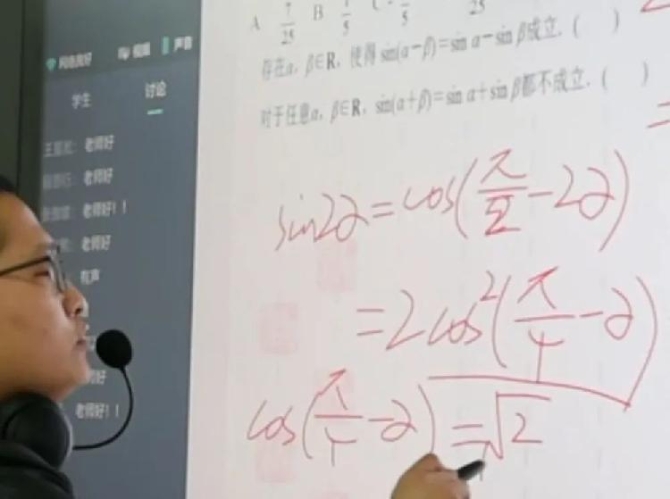 A 7/25 B 1/5 C 5 25
存在α，β∈R，使得 sin(α−β)=sin α−sin β成立．( )
对于任意α，β∈R，sin(α+β)=sin α+sin β都不成立．( )
网络良好 视频 声音
学生 讨论
老师好
老师好
老师好！！
老师好
有声
老师好！！
sin2α=cos(π/2−2α)
=2cos²(π/4−α)
cos(π/4−α)=√2